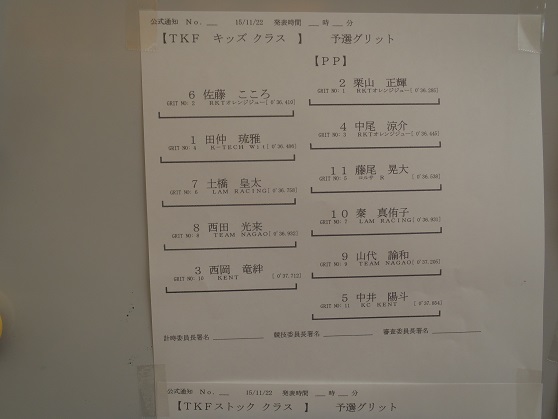 公式通知 No. __ 15/11/22 発表時間 __時__分
【TKF キッズ クラス 】 予選グリット
【PP】
2 栗山 正輝
GRIT NO: 1 RKTオレンジジュー[ 0'36.285]
6 佐藤 こころ
GRIT NO: 2 RKTオレンジジュー[ 0'36.410]
4 中尾 涼介
GRIT NO: 3 RKTオレンジジュー[ 0'36.445]
1 田仲 琉雅
GRIT NO: 4 R-TECH Wit[ 0'36.486]
11 藤尾 晃大
GRIT NO: 5 R [ 0'36.528]
7 土橋 皇太
GRIT NO: 6 LAM RACING[ 0'36.758]
10 秦 真侑子
GRIT NO: 7 LAM RACING[ 0'36.951]
8 西田 光来
GRIT NO: 8 TEAM NAGAO[ 0'36.992]
9 山代 諭和
GRIT NO: 9 TEAM NAGAO[ 0'37.205]
3 西岡 竜絆
GRIT NO: 10 KENT [ 0'37.712]
5 中井 陽斗
GRIT NO: 11 KC KENT [ 0'37.864]
計時委員長署名 ________ 競技委員長署名 ________ 審査委員長署名 ________
公式通知 No. __ 15/11/22 発表時間 __時__分
【TKFストック クラス 】 予選グリット